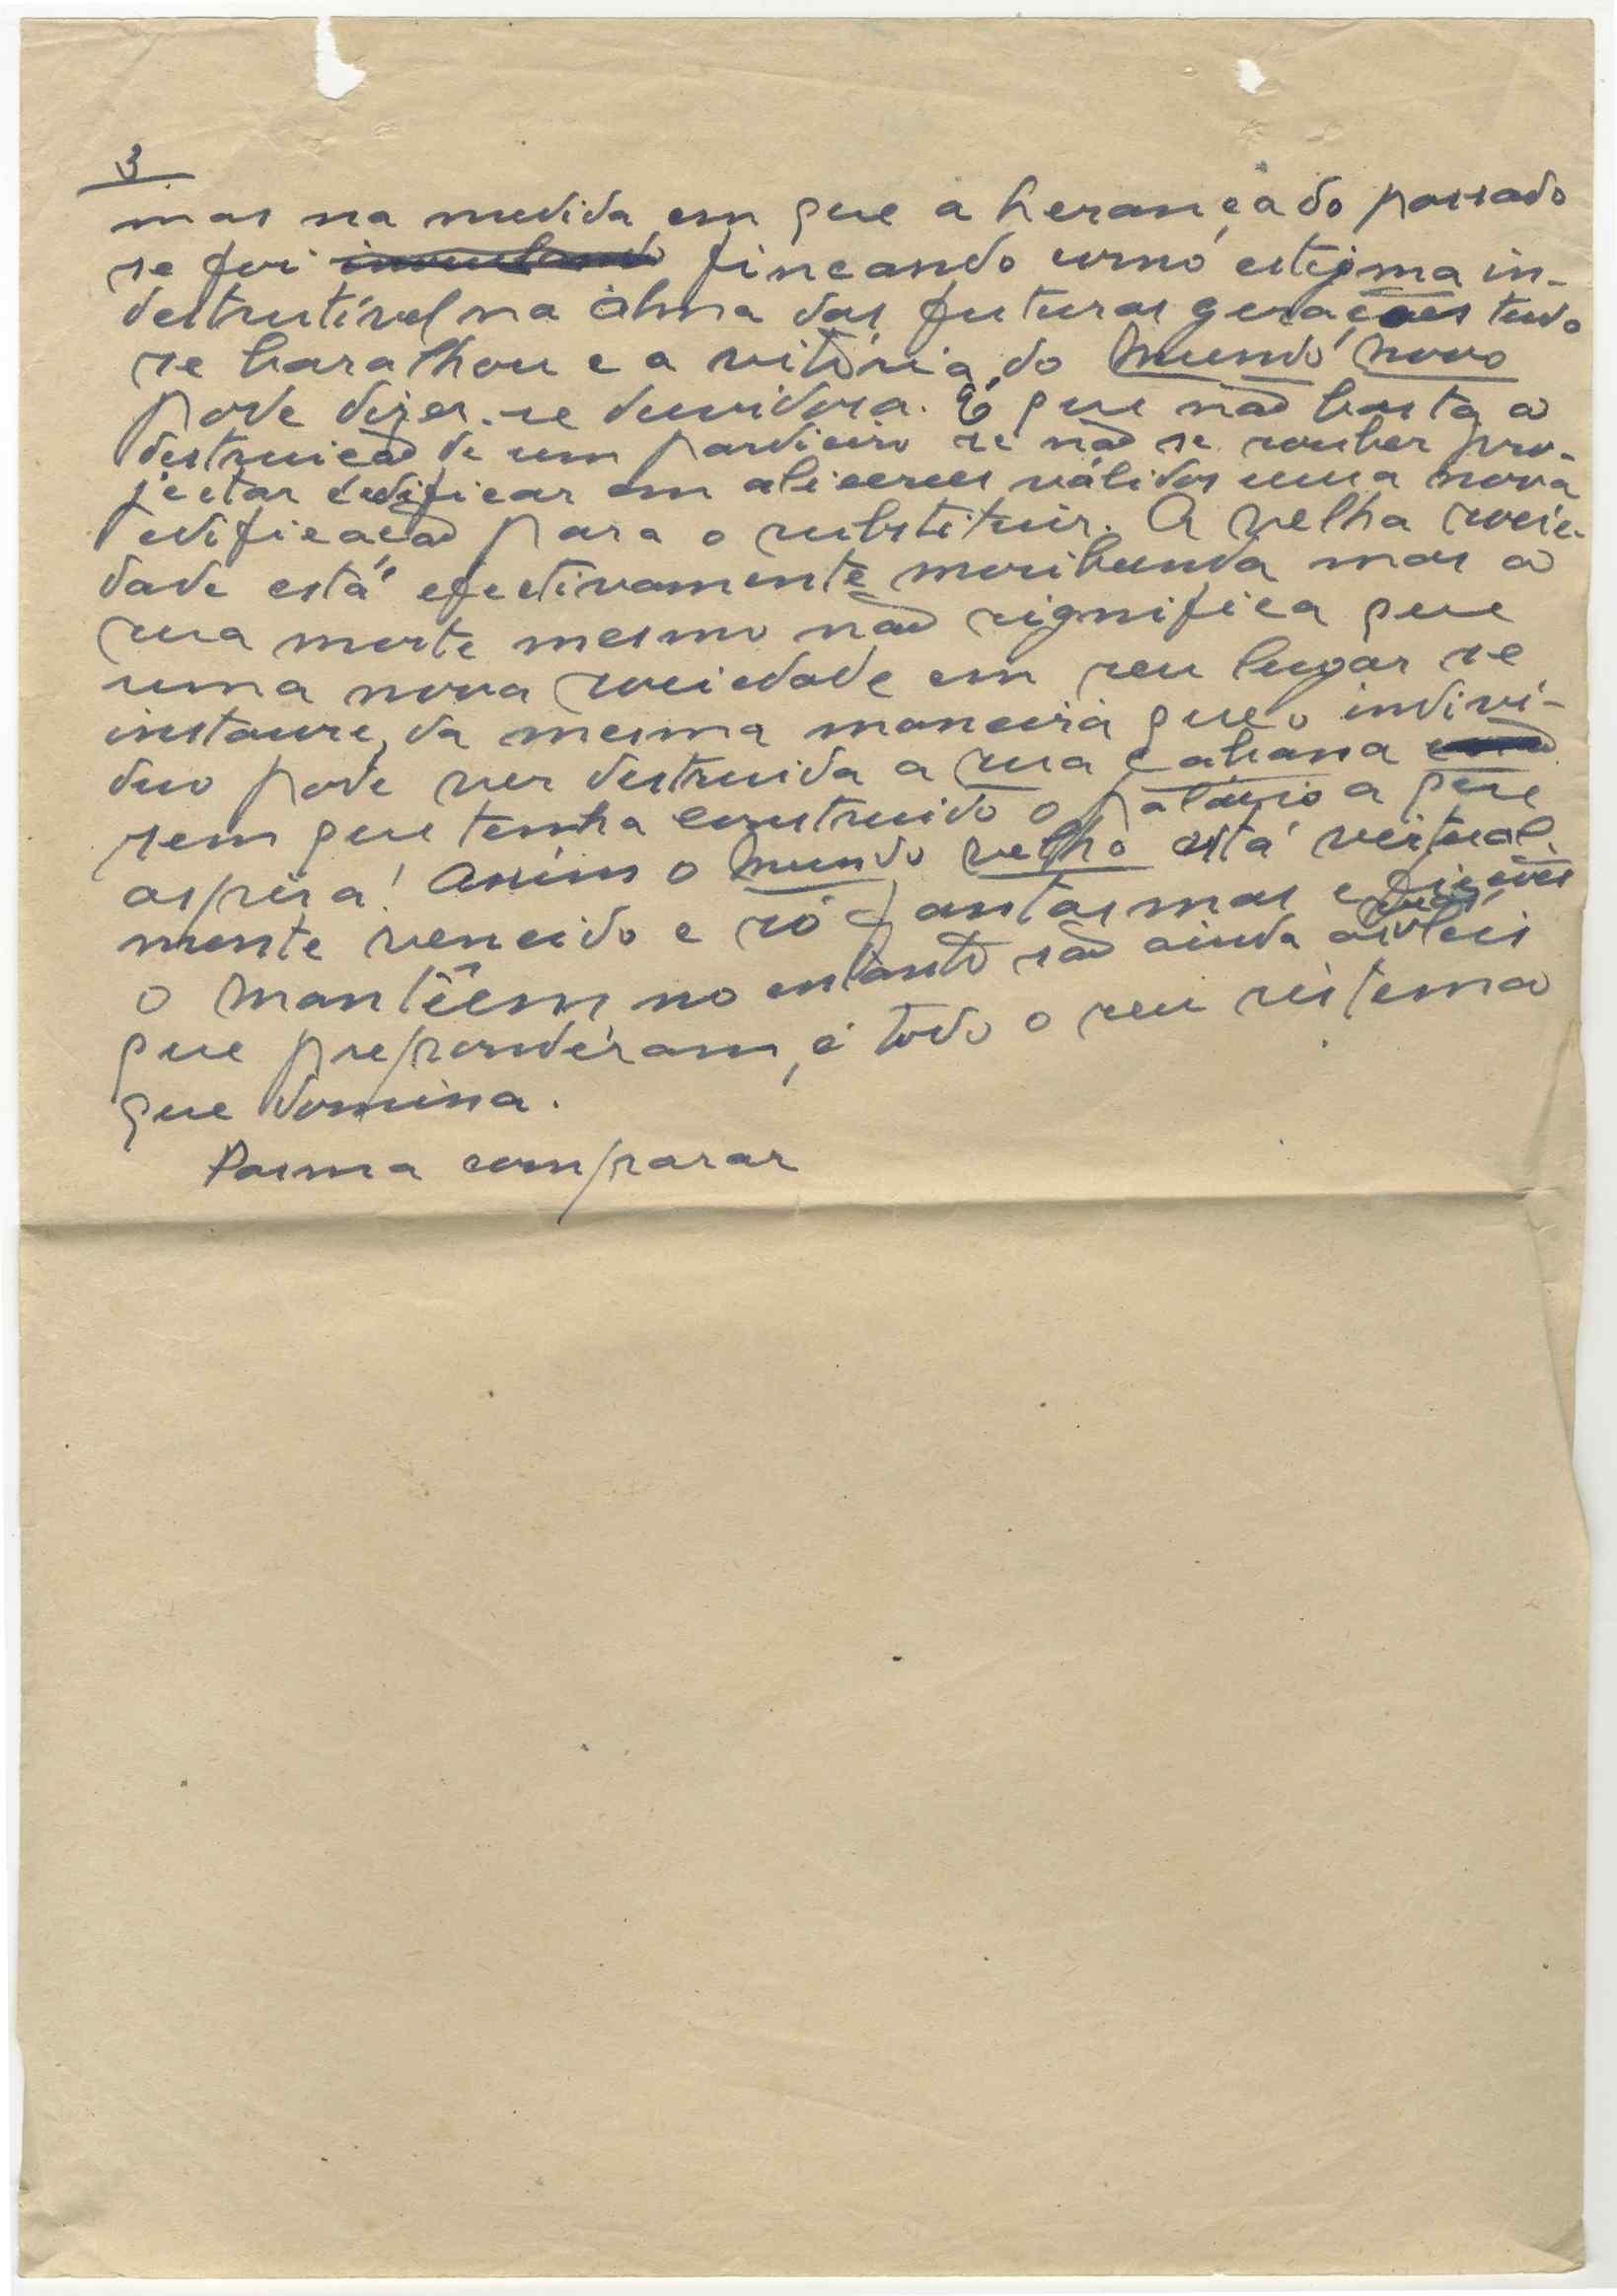 3
mas na medida em que a herança do passado
se foi fincando como estigma in-
destrutível na alma das futuras gerações tudo
se baralhou e a vitória do mundo novo
pode dizer-se duvidosa. É que não basta a
destruição de um pardieiro se não se souber pro-
jectar e edificar em alicerces válidos uma nova
edificação para o substituir. A velha socie-
dade está efectivamente moribunda mas a
sua morte mesmo não significa que
uma nova sociedade em seu lugar se
instaure, da mesma maneira que o indiví-
duo pode ver destruida a sua cabana
sem que tenha construido o palácio a que
aspira! Assim o mundo velho está virtual-
mente vencido e só fantasmas e ficções
o mantêem no entanto são ainda as suas leis
que preponderam, é todo o seu sistema
que domina.
Pasma comparar